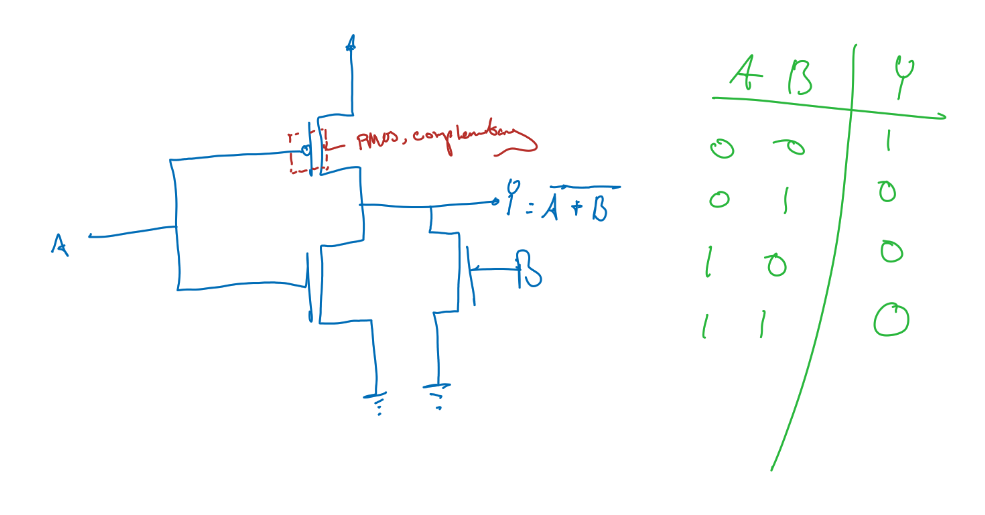 PMOS, complementary
Y = \overline{A + B}
A
B
A B Y
0 0 1
0 1 0
1 0 0
1 1 0